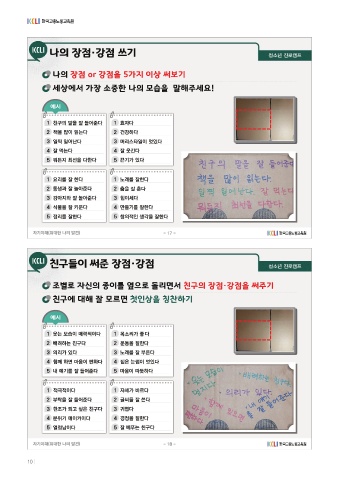 KCLI 한국고용노동교육원
KCLI 나의 장점·강점 쓰기
청소년 진로캠프
나의 장점 or 강점을 5가지 이상 써보기
세상에서 가장 소중한 나의 모습을 말해주세요!
예시
1 친구의 말을 잘 들어준다
2 책을 많이 읽는다
3 일찍 일어난다
4 잘 먹는다
5 뭐든지 최선을 다한다
1 효자다
2 건강하다
3 헤어스타일이 멋있다
4 잘 웃긴다
5 끈기가 있다
1 요리를 잘 한다
2 동생과 잘 놀아준다
3 강아지와 잘 놀아준다
4 식물을 잘 키운다
5 정리를 잘한다
1 노래를 잘한다
2 춤을 잘 춘다
3 힘이세다
4 만들기를 잘한다
5 창의적인 생각을 잘한다
친구의 말을 잘 들어준다
책을 많이 읽는다
일찍 일어난다. 잘 먹는다
뭐든지 최선을 다한다.
자기이해(위대한 나의 발견)
- 17 -
KCLI 한국고용노동교육원
KCLI 친구들이 써준 장점·강점
청소년 진로캠프
조별로 자신의 종이를 옆으로 돌리면서 친구의 장점·강점을 써주기
친구에 대해 잘 모르면 첫인상을 칭찬하기
예시
1 웃는 모습이 매력적이다
2 배려하는 친구다
3 의리가 있다
4 함께 하면 마음이 편하다
5 내 얘기를 잘 들어준다
1 목소리가 좋다
2 운동을 잘한다
3 노래를 잘 부른다
4 쉽은 눈썹이 멋있다
5 마음이 따뜻하다
1 적극적이다
2 부탁을 잘 들어준다
3 한조가 되고 싶은 친구다
4 분위기 메이커이다
5 열정남이다
1 자세가 바르다
2 글씨를 잘 쓴다
3 귀엽다
4 경청을 잘한다
5 잘 베푸는 친구다
웃는 모습이
멋지다
배려하는 친구다
의리가 있다.
함께 하면
마음이 편하다
내 얘기를
잘 들어준다
자기이해(위대한 나의 발견)
- 18 -
KCLI 한국고용노동교육원
10